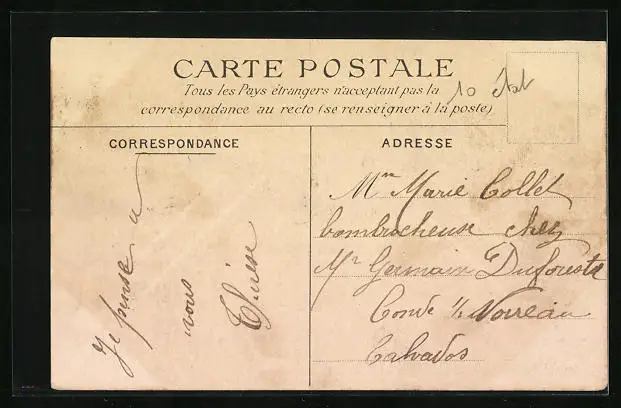 CARTE POSTALE
Tous les Pays étrangers n'acceptant pas la
correspondance au recto (se renseigner à la poste)
10
CORRESPONDANCE
ADRESSE
Je pense a
vous
Mme Marie Collet
chez
Mr Germain
Condé s/ Noireau
Calvados